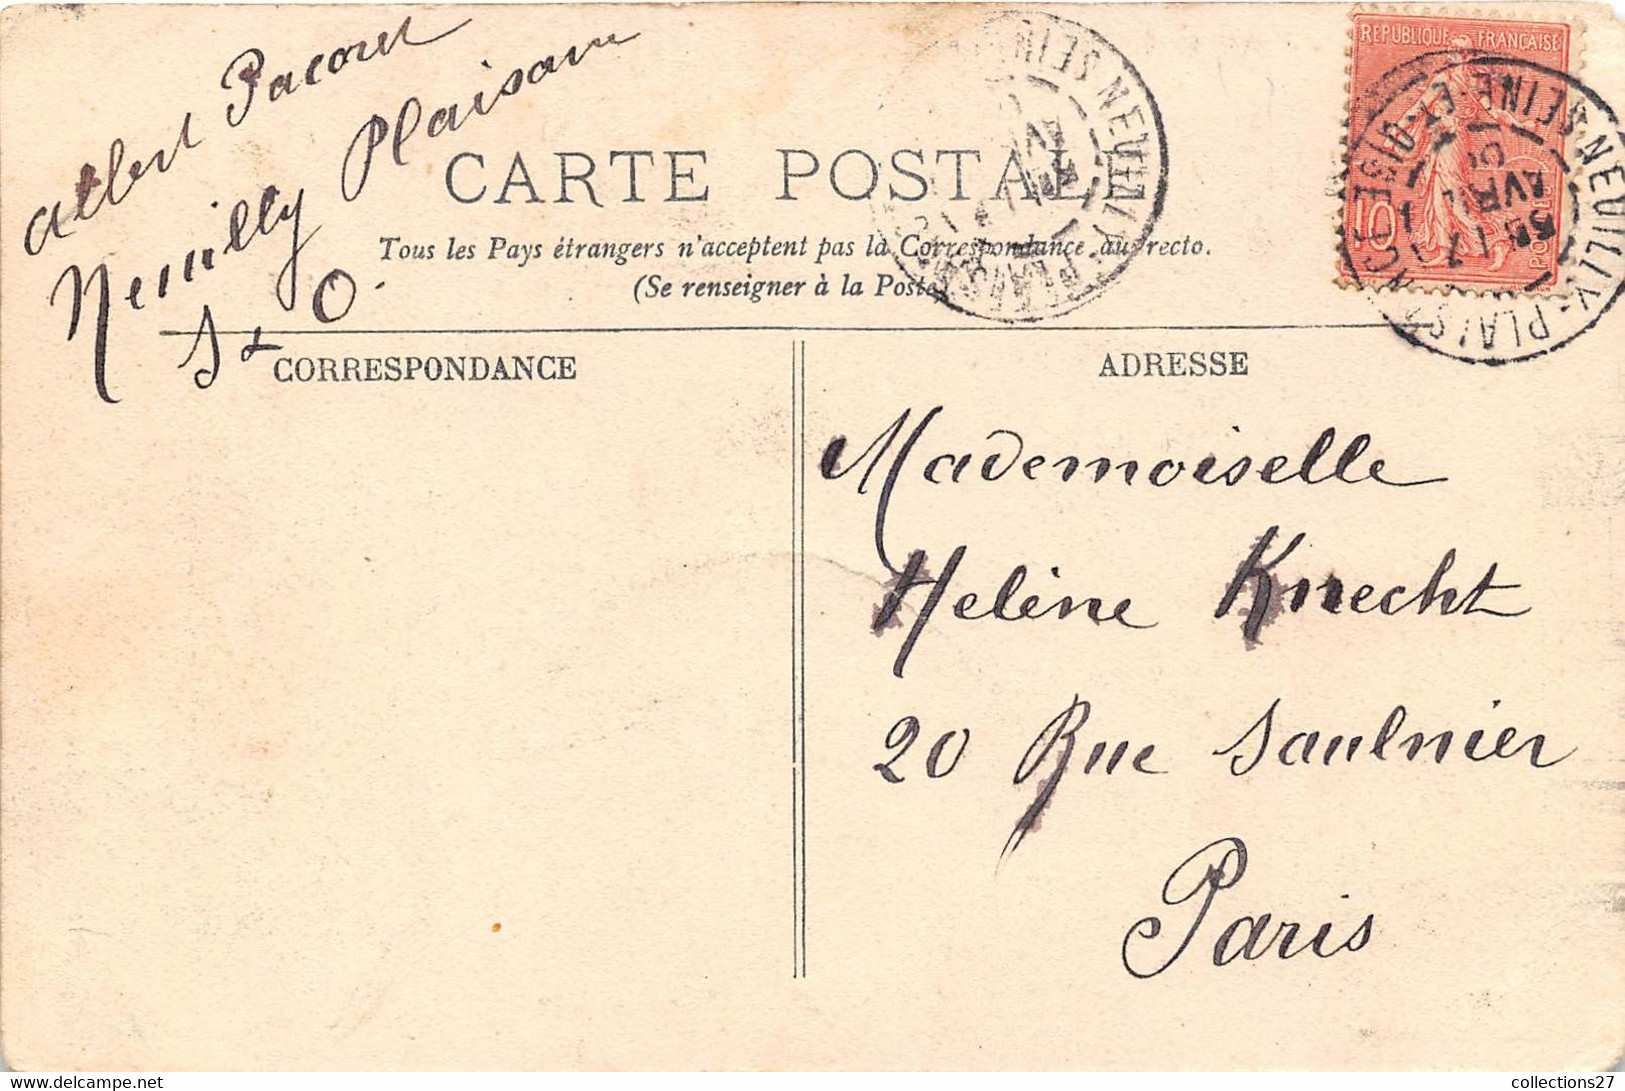 Albert Pacoret
Neuilly Plaisance
S & O.
CARTE POSTALE
Tous les Pays étrangers n'acceptent pas la Correspondance au recto.
(Se renseigner à la Poste)
CORRESPONDANCE
ADRESSE
REPUBLIQUE FRANÇAISE
10
POSTES
NEUILLY-PLAISANCE
SEINE-ET-OISE
17
AVRIL
Mademoiselle
Helène Knecht
20 Rue Saulnier
Paris
collections27